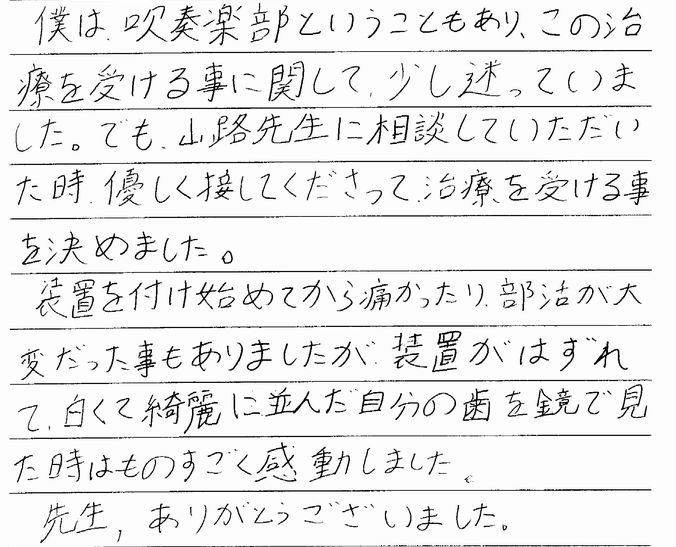 僕は、吹奏楽部ということもあり、この治
療を受ける事に関して、少し迷っていま
した。でも、山路先生に相談していただい
た時、優しく接してくださって、治療を受ける事
を決めました。
装置を付け始めてから痛かったり、部活が大
変だった事もありましたが、装置がはずれ
て、白くて綺麗に並んだ自分の歯を鏡で見
た時はものすごく感動しました。
先生，ありがとうございました。